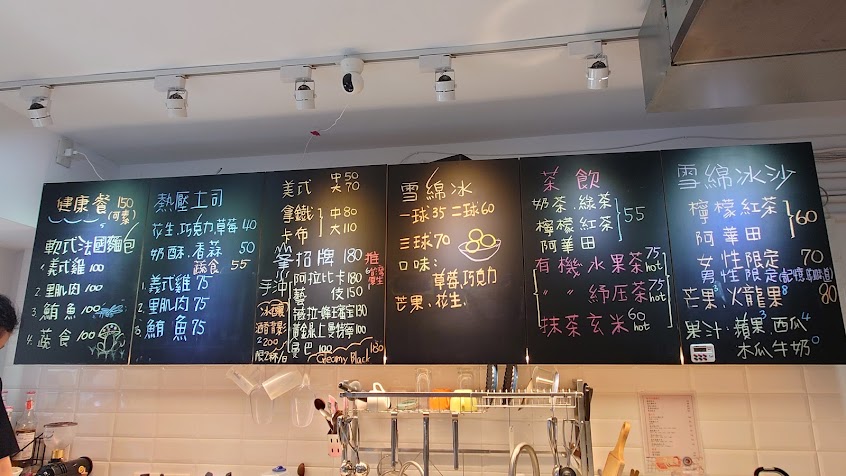 健康餐 150
(可素)
軟式法國麵包
1. 義式雞 100
2. 里肌肉 100
3. 鮪魚 100
4. 蔬食 100
熱壓土司
花生.巧克力.草莓 40
奶酥.香蒜 50
蔬食 55
1. 義式雞 75
2. 里肌肉 75
3. 鮪魚 75
美式 中50
大70
拿鐵 中80
卡布 大110
招牌 180
手沖
阿拉比卡 180
藝伎 150
冰釀
2200
Creamy Black 180
雪綿冰
一球35 二球60
三球70
口味:
草莓.巧克力
芒果.花生.
茶飲
奶茶.綠茶
檸檬紅茶 55
阿華田
有機水果茶 75 hot
〃 〃 紓压茶 75 hot
抹茶玄米 60 hot
雪綿冰沙
檸檬紅茶
阿華田 60
女性限定 70
男性限定
芒果.火龍果 80
果汁:蘋果 西瓜
木瓜牛奶